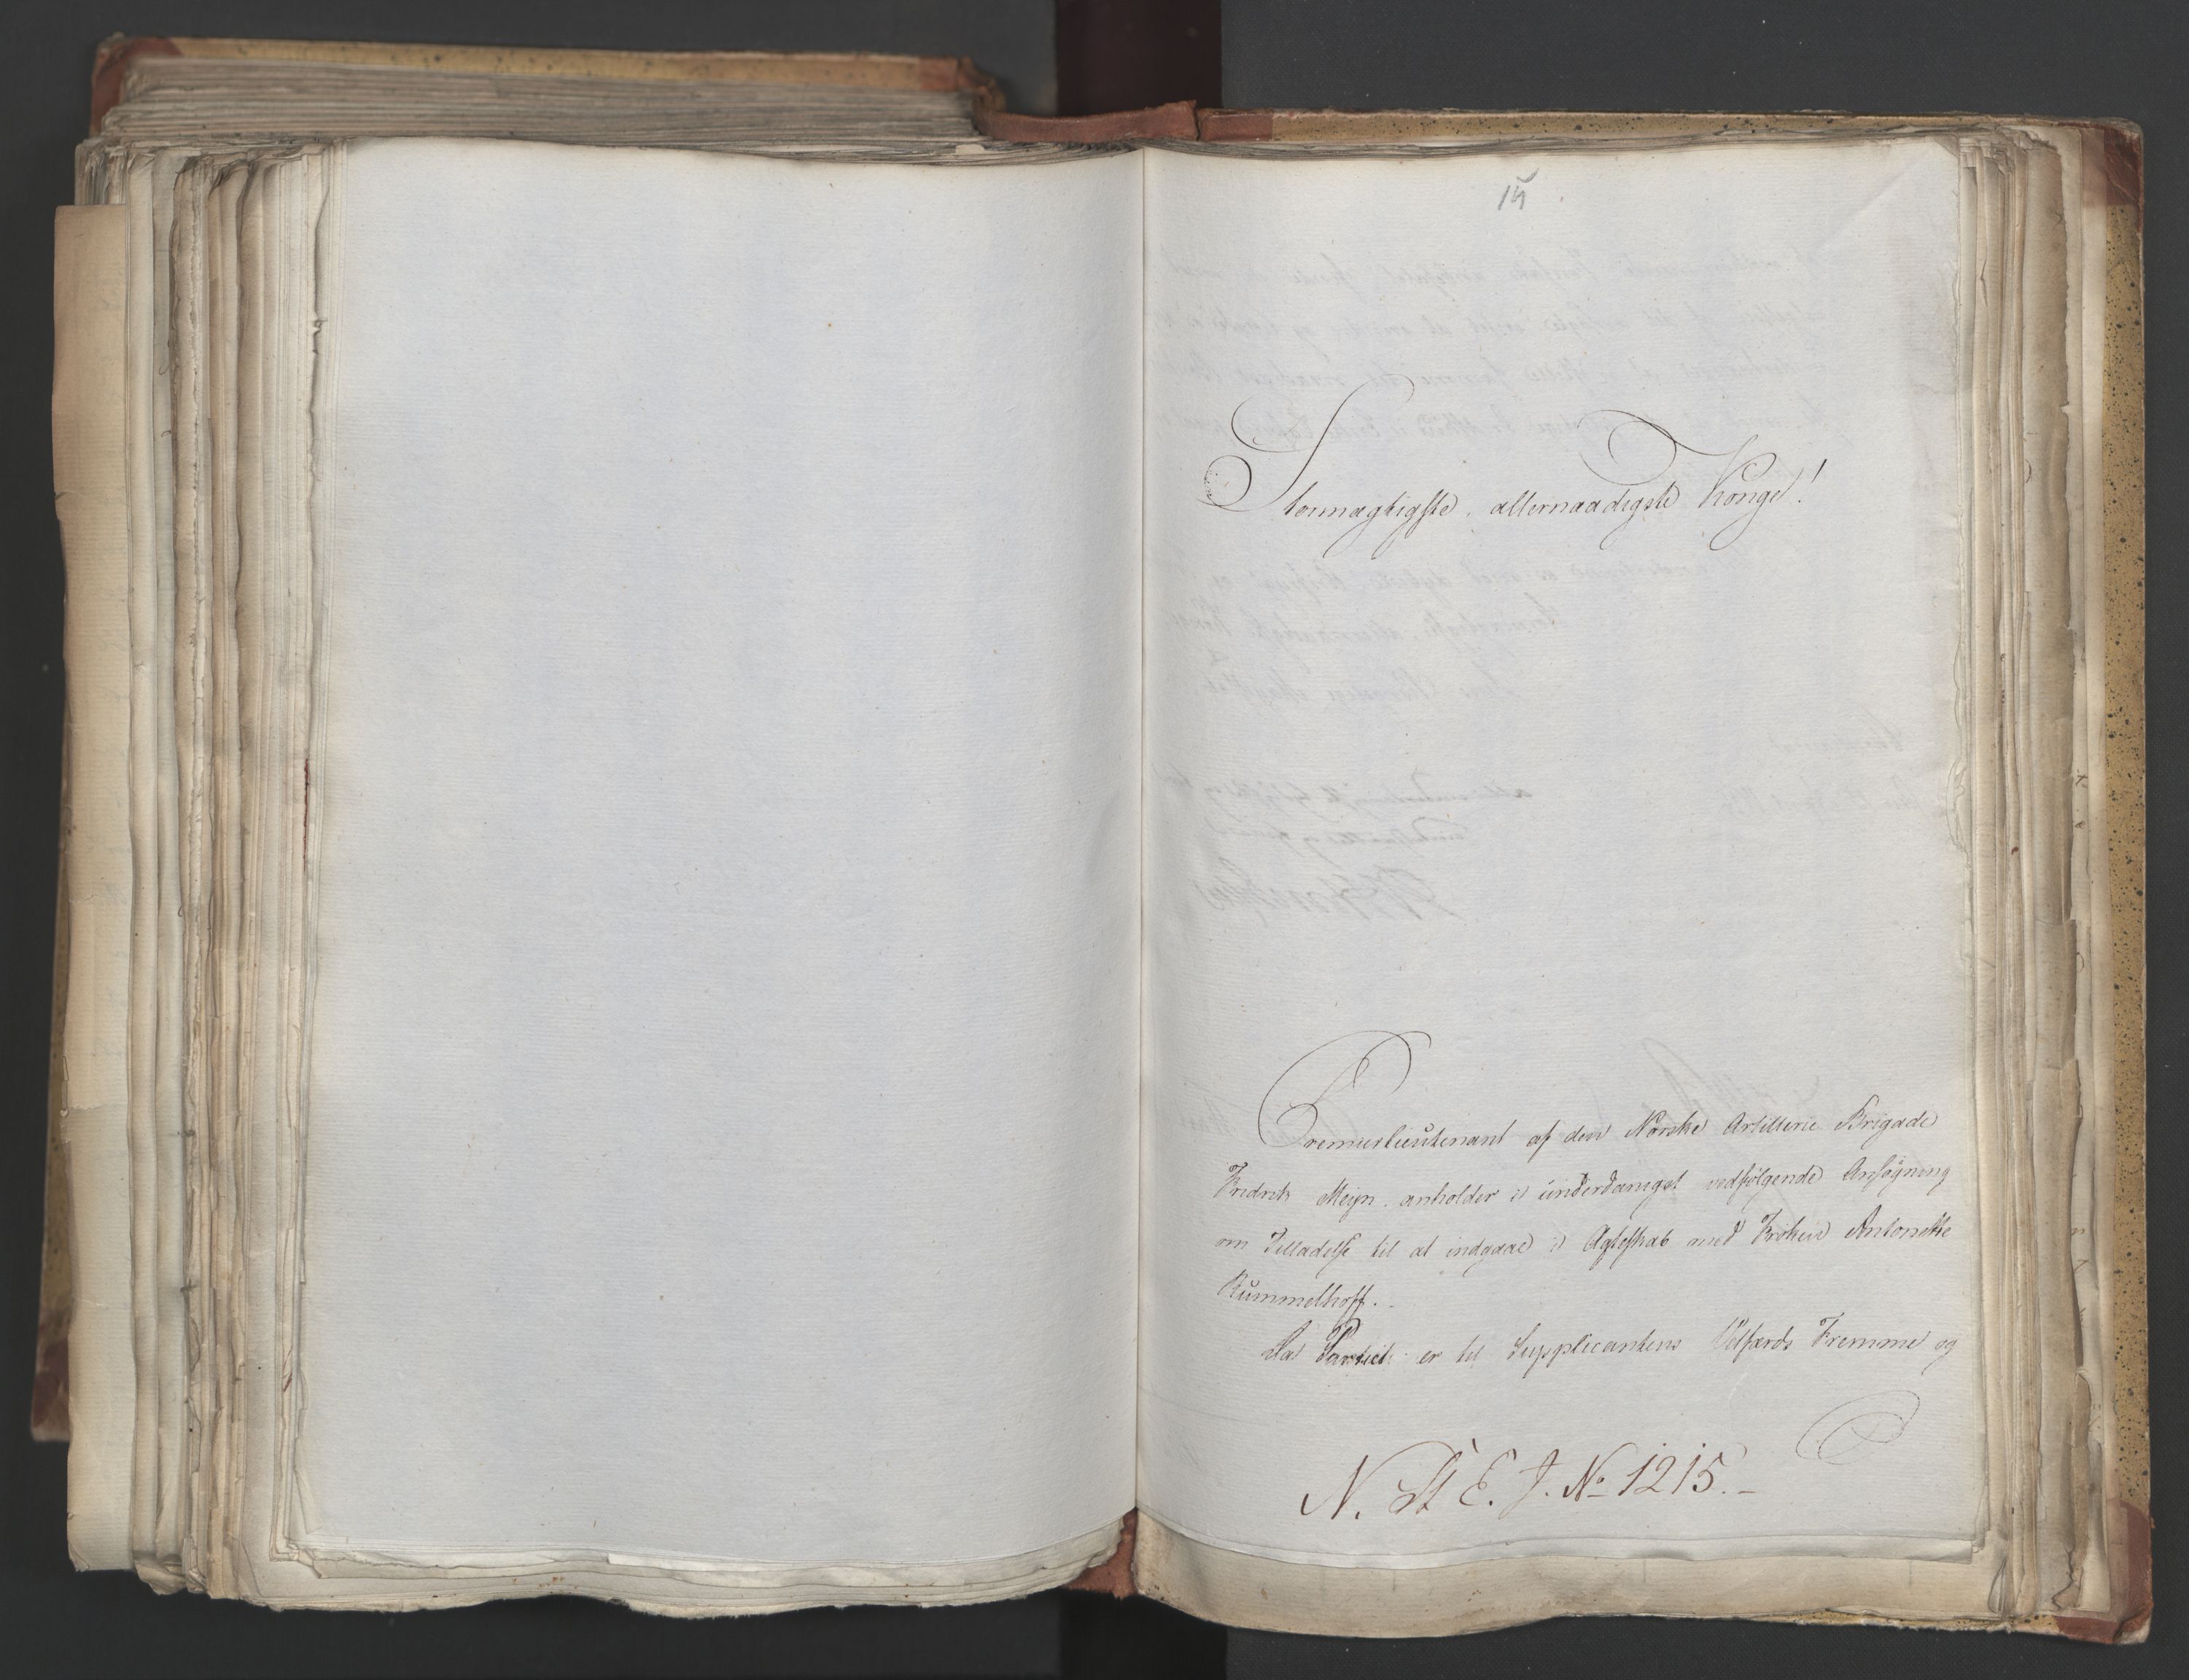 15.
Stormægtigste, allernaadigste Konge!
Premierlieutenant af den Norske Artillerie Brigade
Fredrik Meyn, anholder i underdanigst vedfølgende Ansøgning
om Tilladelse til at indgaae i Ægteskab med Frøken Antonette
Rummelhoff.
Da Partiet er til Supplicantens Velfærds Fremme og
N. St E. J. No 1215.